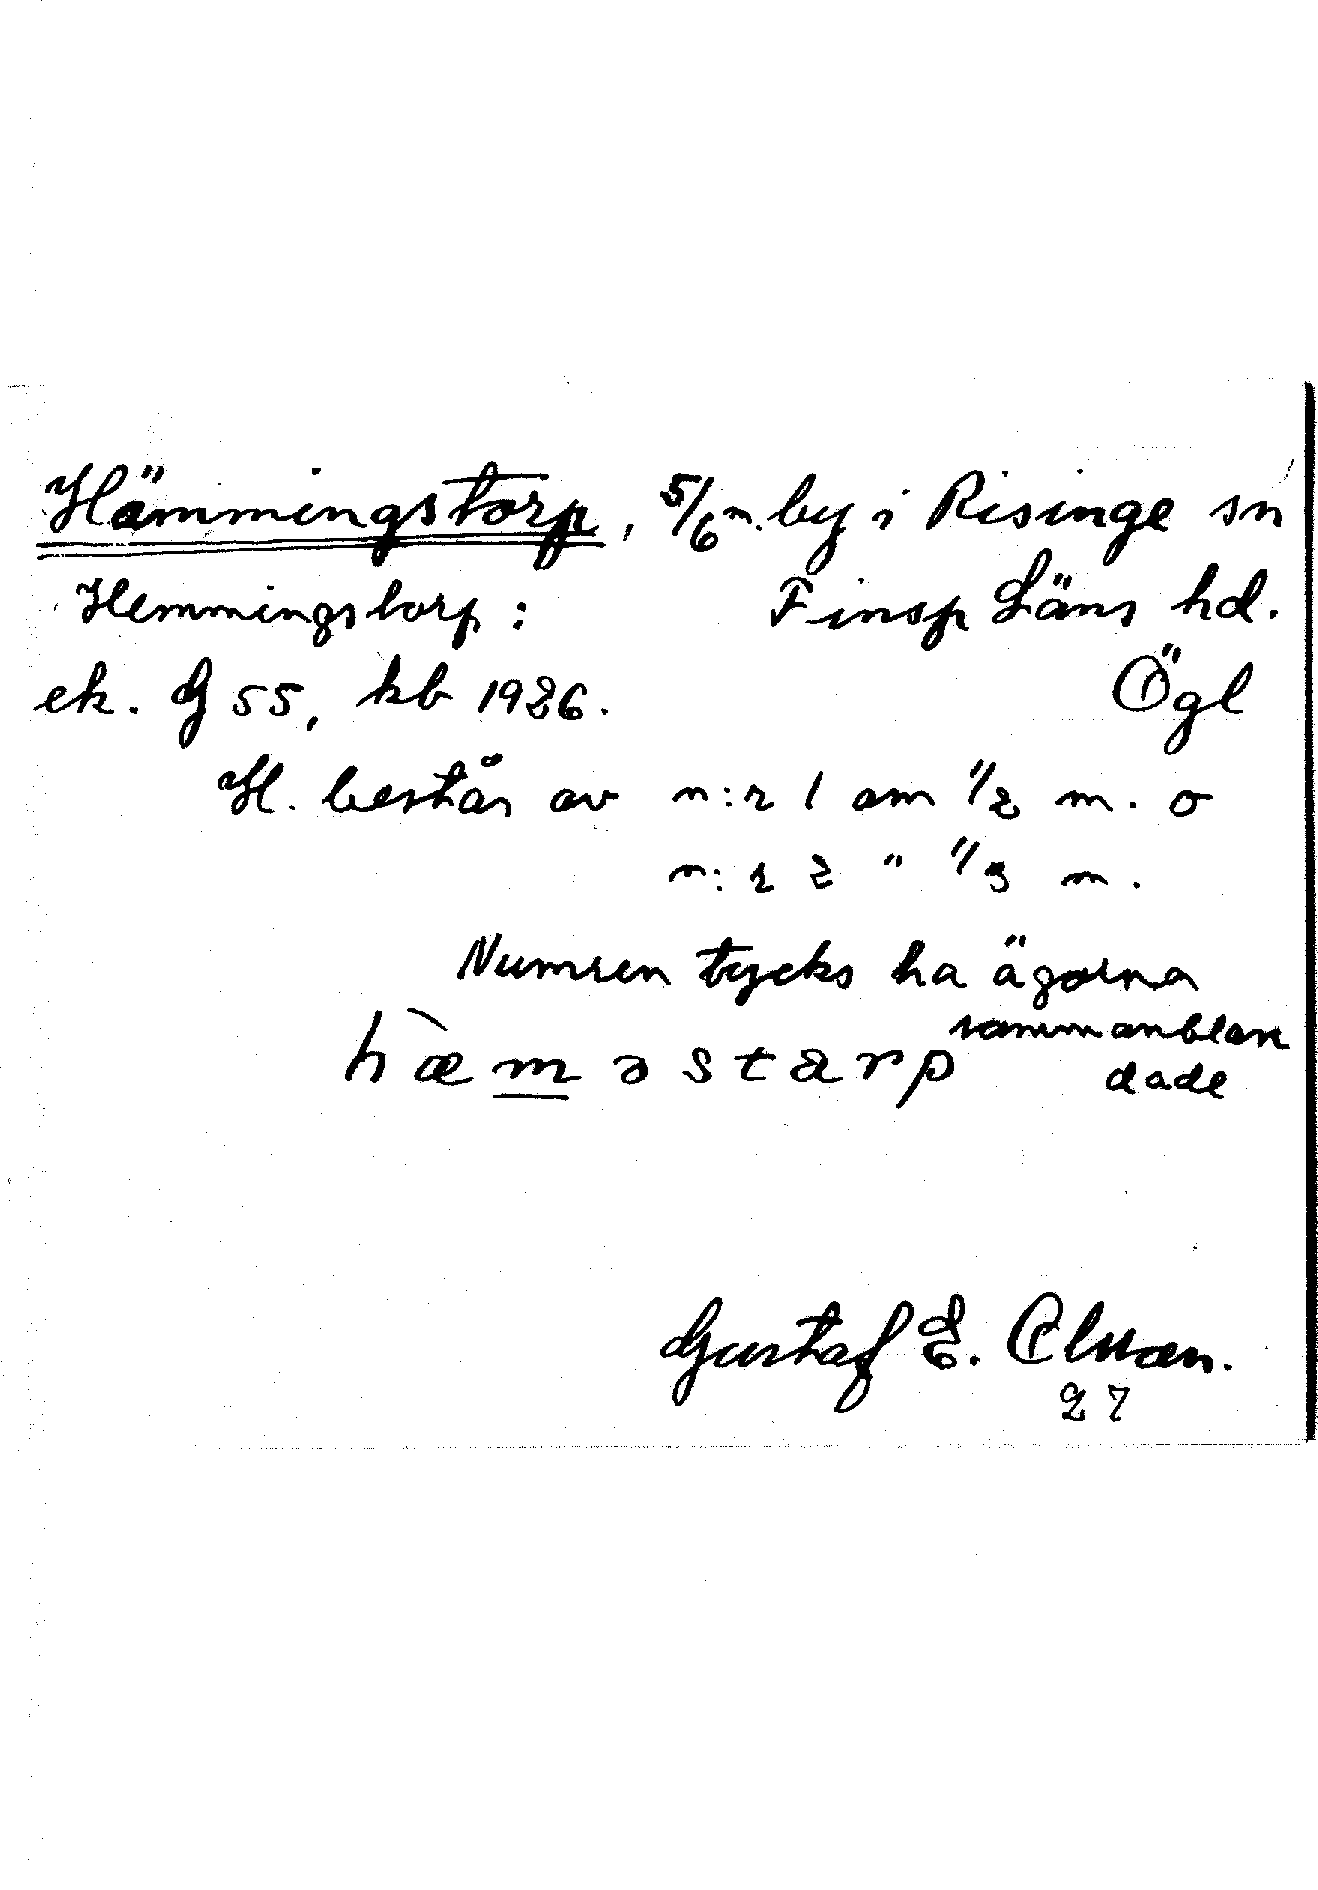 Hämmingstorp, 5/6 m. by i Risinge sn
Hemmingstorp: Finsp Läns hd.
ek. G 55, kb 1926. Ögl
H. består av n:r 1 om 1/2 m. o
n:r 2 " 1/3 m.
Numren tycks ha ägorna
sammanblan
dade
hæ̀m̲əstarp
Gustaf E.
27